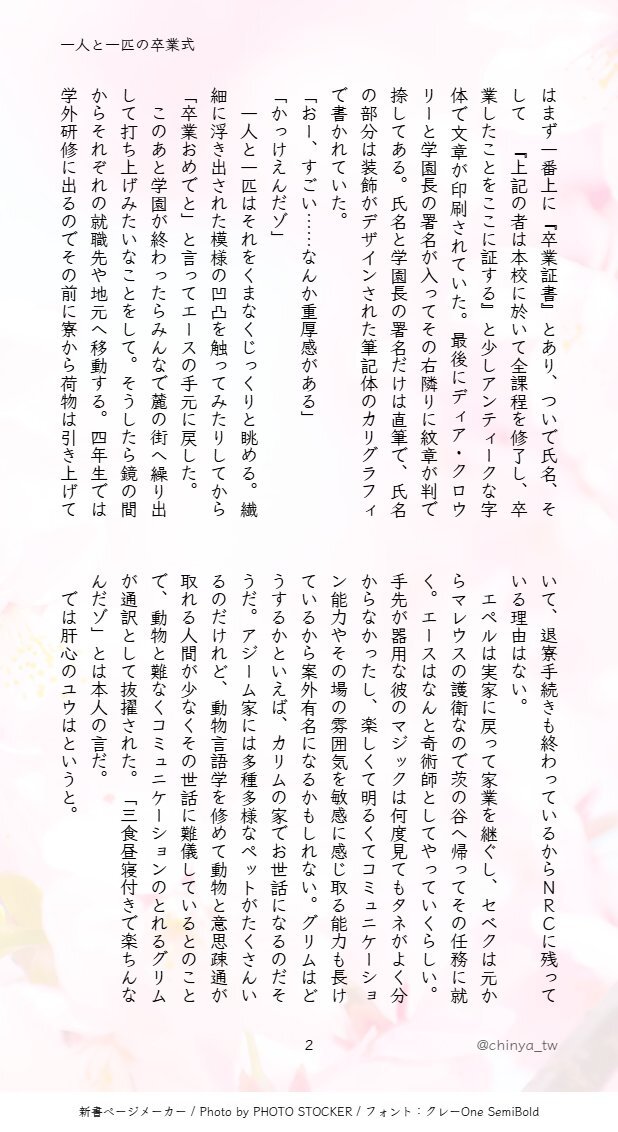 一人と一匹の卒業式
はまず一番上に『卒業証書』とあり、ついで氏名、そ
して　『上記の者は本校に於いて全課程を修了し、卒
業したことをここに証する』と少しアンティークな字
体で文章が印刷されていた。最後にディア・クロウ
リーと学園長の署名が入ってその右隣りに紋章が判で
捺してある。氏名と学園長の署名だけは直筆で、氏名
の部分は装飾がデザインされた筆記体のカリグラフィ
で書かれていた。
「おー、すごい……なんか重厚感がある」
「かっけえんだゾ」
　一人と一匹はそれをくまなくじっくりと眺める。繊
細に浮き出された模様の凹凸を触ってみたりしてから
「卒業おめでと」と言ってエースの手元に戻した。
　このあと学園が終わったらみんなで麓の街へ繰り出
して打ち上げみたいなことをして。そうしたら鏡の間
からそれぞれの就職先や地元へ移動する。四年生では
学外研修に出るのでその前に寮から荷物は引き上げて
いて、退寮手続きも終わっているからＮＲＣに残って
いる理由はない。
　エペルは実家に戻って家業を継ぐし、セベクは元か
らマレウスの護衛なので茨の谷へ帰ってその任務に就
く。エースはなんと奇術師としてやっていくらしい。
手先が器用な彼のマジックは何度見てもタネがよく分
からなかったし、楽しくて明るくてコミュニケーショ
ン能力やその場の雰囲気を敏感に感じ取る能力も長け
ているから案外有名になるかもしれない。グリムはど
うするかといえば、カリムの家でお世話になるのだそ
うだ。アジーム家には多種多様なペットがたくさんい
るのだけれど、動物言語学を修めて動物と意思疎通が
取れる人間が少なくその世話に難儀しているとのこと
で、動物と難なくコミュニケーションのとれるグリム
が通訳として抜擢された。「三食昼寝付きで楽ちんな
んだゾ」とは本人の言だ。
　では肝心のユウはというと。
2
@chinya_tw
新書ページメーカー / Photo by PHOTO STOCKER / フォント：クレーOne SemiBold